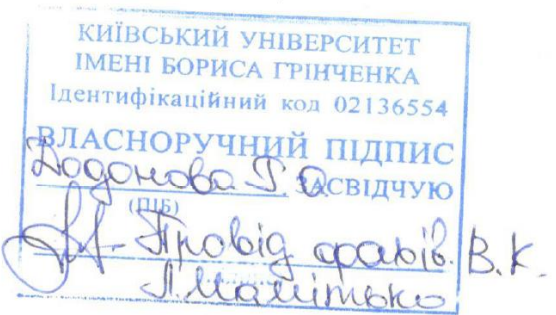 КИЇВСЬКИЙ УНІВЕРСИТЕТ
ІМЕНІ БОРИСА ГРІНЧЕНКА
Ідентифікаційний код 02136554
ВЛАСНОРУЧНИЙ ПІДПИС
Додонова Г. О. ЗАСВІДЧУЮ
(ПІБ)
Провід. фахів. В.К.